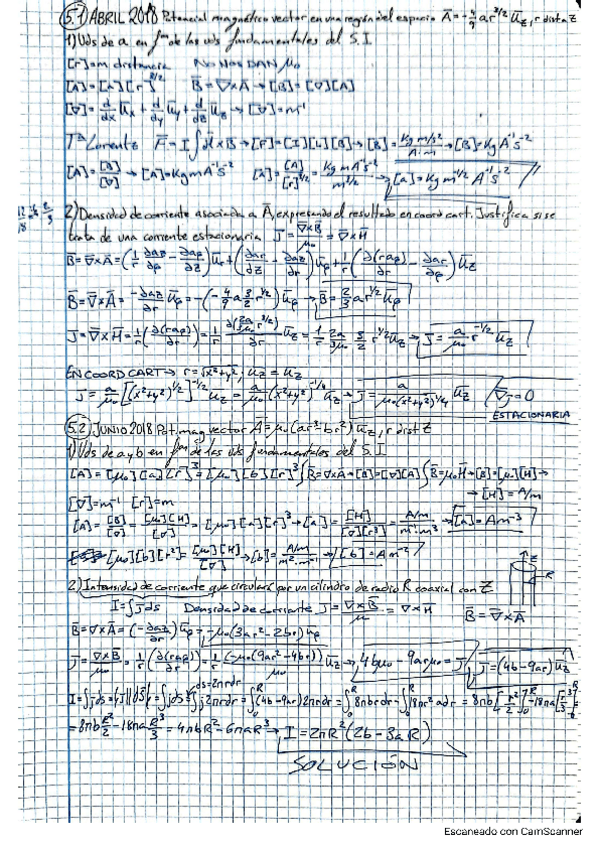 5.1) ABRIL 2018 Potencial magnético vector en una región del espacio A̅ = -4/9 a r^{3/2} u̅_z, r dist a Z
1) Uds de a en fᵐ de las uds fundamentales del S.I.
[r]=m distancia NO NOS DAN μ₀
[A]=[a][r]^{3/2} B̅=∇̅×A̅ → [B]=[∇][A]
[∇]= d/dx u̅_x + d/dy u̅_y + d/dz u̅_z → [∇]=m⁻¹
Tª Lorentz F̅ = I∫dl̅×B̅ → [F]=[I][L][B] → [B]= Kg m/s² / A·m → [B]=Kg A⁻¹ s⁻²
[A]= [B]/[∇] → [A]=Kg m A⁻¹ s⁻² [a]= [A]/[r]^{3/2} = Kg m A⁻¹ s⁻² / m^{3/2} → [a]=Kg m^{-1/2} A⁻¹ s⁻²
2) Densidad de corriente asociada a A̅, expresando el resultado en coord cart. Justifica si se
trata de una corriente estacionaria J̅ = ∇̅×B̅/μ₀ = ∇̅×H̅
B̅=∇̅×A̅=(1/r ∂az/∂φ - ∂aφ/∂z) u̅_r + (∂ar/∂z - ∂az/∂r) u̅_φ + 1/r (∂(raφ)/∂r - ∂ar/∂φ) u̅_z
B̅=∇̅×A̅= -∂az/∂r u̅_φ = -(-4/9 a 3/2 r^{1/2}) u̅_φ → B̅= 2/3 a r^{1/2} u̅_φ
J̅=∇̅×H̅= 1/r (∂(raφ)/∂r) = 1/r ∂(2a/3μ₀ r^{3/2})/∂r u̅_z = 1/r 2a/3μ₀ 3/2 r^{1/2} u̅_z → J̅= a/μ₀ r^{-1/2} u̅_z
EN COORD CART → r=√(x²+y²), u̅_z = u̅_z
J̅= a/μ₀ [(x²+y²)^{1/2}]^{-1/2} u̅_z = a/μ₀ (x²+y²)^{-1/4} u̅_z → J̅= a/μ₀(x²+y²)^{1/4} u̅_z ∇̅J̅=0
ESTACIONARIA
5.2) JUNIO 2018 Pot. mag vector A̅=μ₀(ar³-br²) u̅_z, r dist Z
1) Uds de a y b en fᵐ de las uds fundamentales del S.I
[A]=[μ₀][a][r]³=[μ₀][b][r]² B̅=∇̅×A̅→[B]=[∇][A] B̅=μ₀H̅→[B]=[μ₀][H]→
→[H]=A/m
[∇]=m⁻¹ [r]=m
[A]= [B]/[∇] = [μ₀][H]/[∇] = [μ₀][a][r]³ → [a]= [H]/[∇][r³] = A/m / m⁻¹·m³ → [a]=Am⁻³
[μ₀][b][r²]= [μ₀][H]/[∇] → [b]= A/m / m²·m⁻¹ → [b]=Am⁻²
2) Intensidad de corriente que circulará por un cilindro de radio R coaxial con Z
I=∫J̅ds̅ Densidad de corriente J̅= ∇̅×B̅/μ = ∇̅×H̅ B̅=∇̅×A̅
B̅=∇̅×A̅=(-∂az/∂r) u̅_φ = -μ₀(3ar²-2br) u̅_φ
J̅= ∇̅×B̅/μ₀ = 1/r (∂(raφ)/∂r) = 1/r (-μ₀(9ar²-4br)) u̅_z → 4bμ₀-9arμ₀=J J̅=(4b-9ar) u̅_z
ds=2πrdr
I=∫J̅ds̅=∫|J̅||ds̅|=∫Jds=∫J2πrdr=∫(4b-9ar)2πrdr=∫8πbrdr-∫18πr²adr=8πb[r²/2]-18πa[r³/3]
=8πb R²/2 - 18πa R³/3 = 4πbR²-6πaR³ → I=2πR²(2b-3aR)
SOLUCIÓN
Escaneado con CamScanner